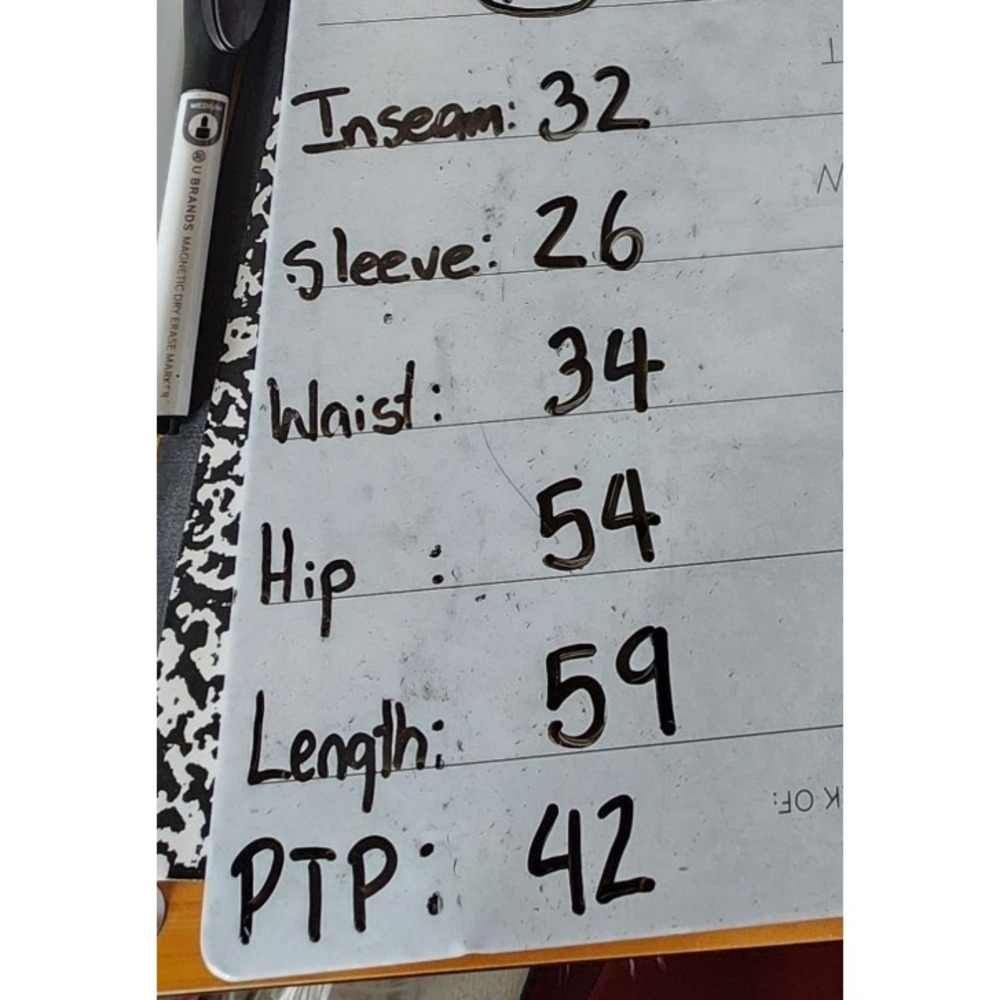 Inseam: 32
Sleeve: 26
Waist: 34
Hip : 54
Length: 59
PTP: 42
MEDIUM
U BRANDS MAGNETIC DRY ERASE MARKER
K OF: